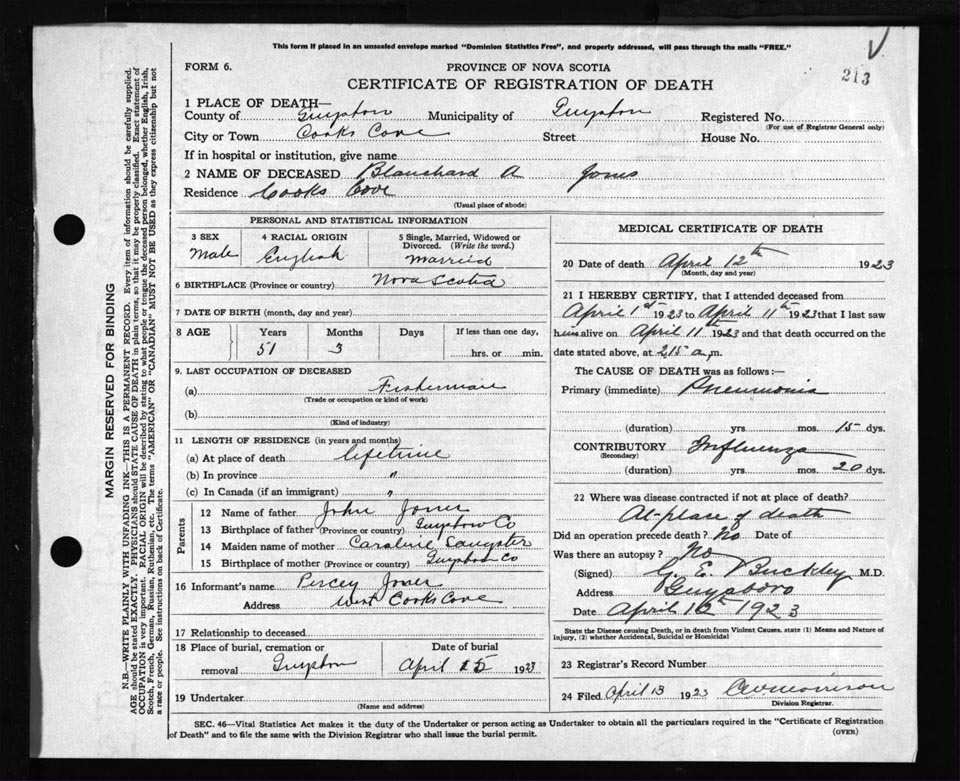 This form if placed in an unsealed envelope marked "Dominion Statistics Free", and properly addressed, will pass through the mails "FREE."
213
FORM 6.
PROVINCE OF NOVA SCOTIA
CERTIFICATE OF REGISTRATION OF DEATH
1 PLACE OF DEATH—
County of Guysboro Municipality of Guysboro Registered No.
(For use of Registrar General only)
City or Town Cooks Cove Street House No.
If in hospital or institution, give name
2 NAME OF DECEASED Blanchard A Jones
Residence Cooks Cove
(Usual place of abode)
PERSONAL AND STATISTICAL INFORMATION
3 SEX 4 RACIAL ORIGIN 5 Single, Married, Widowed or Divorced. (Write the word.)
Male English Married
6 BIRTHPLACE (Province or country) Nova Scotia
7 DATE OF BIRTH (month, day and year)
8 AGE Years Months Days If less than one day,
51 3 hrs. or min.
9. LAST OCCUPATION OF DECEASED
(a) Fisherman
(Trade or occupation or kind of work)
(b)
(Kind of industry)
11 LENGTH OF RESIDENCE (in years and months)
(a) At place of death lifetime
(b) In province "
(c) In Canada (if an immigrant) "
Parents
12 Name of father John Jones
13 Birthplace of father (Province or country) Guysboro Co
14 Maiden name of mother Caroline Langster
15 Birthplace of mother (Province or country) Guysboro Co
16 Informant's name Percey Jones
Address West Cooks Cove
17 Relationship to deceased
18 Place of burial, cremation or Date of burial
removal Guysboro April 15 1923
19 Undertaker
(Name and address)
MEDICAL CERTIFICATE OF DEATH
20 Date of death April 12th 1923
(Month, day and year)
21 I HEREBY CERTIFY, that I attended deceased from
April 1st 1923 to April 11th 1923 that I last saw
him alive on April 11th 1923 and that death occurred on
date stated above, at 2.15 a.m.
The CAUSE OF DEATH was as follows:—
Primary (immediate) Pneumonia
(duration) yrs mos. 15 dys.
CONTRIBUTORY Influenza
(Secondary)
(duration) yrs mos. 20 dys.
22 Where was disease contracted if not at place of death?
At place of death
Did an operation precede death? No Date of
Was there an autopsy? No
(Signed) G. E. Buckley M.D.
Address Guysboro
Date April 12th 1923
State the Disease causing Death, or in death from Violent Causes, state (1) Means and Nature of
Injury, (2) whether Accidental, Suicidal or Homicidal
23 Registrar's Record Number
24 Filed April 13 1923
Division Registrar.
SEC. 46—Vital Statistics Act makes it the duty of the Undertaker or person acting as Undertaker to obtain all the particulars required in the "Certificate of Registration
of Death" and to file the same with the Division Registrar who shall issue the burial permit.
(OVER)
MARGIN RESERVED FOR BINDING
N.B.—WRITE PLAINLY WITH UNFADING INK—THIS IS A PERMANENT RECORD. Every item of information should be carefully supplied.
AGE should be stated EXACTLY. PHYSICIANS should STATE CAUSE OF DEATH in plain terms, so that it may be properly classified. Exact statement of
OCCUPATION is very important. RACIAL ORIGIN will be described by stating to what people or tongue the deceased person belonged, whether English, Irish,
Scotch, French, German, Russian, Ruthenian, etc. The terms "AMERICAN" OR "CANADIAN" MUST NOT BE USED as they express citizenship but not
a race or people. See instructions on back of Certificate.